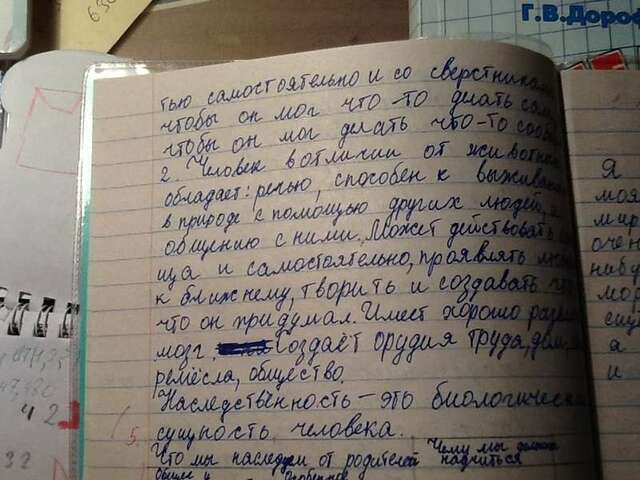 Г.В.Дороф
тью самостоятельно и со сверстниками
чтобы он мог что-то делать сам
чтобы он мог делать что-то сооб
2. Человек в отличии от животн
обладает: речью, способен к выжива
в природе с помощью других людей, и
общению с ними. Может действовать
ща и самостоятельно, проявлять
к ближнему, творить и создавать
что он придумал. Имеет хорошо разви
мозг. Создаёт орудия труда, дом
ремёсла, общество.
Наследственность – это биологическ
сущность человека.
Что мы наследуем от родителей
Чему мы должны
научиться
5.
Я
моя
мир
очен
набр
мозг
сущ
а
и
42
32